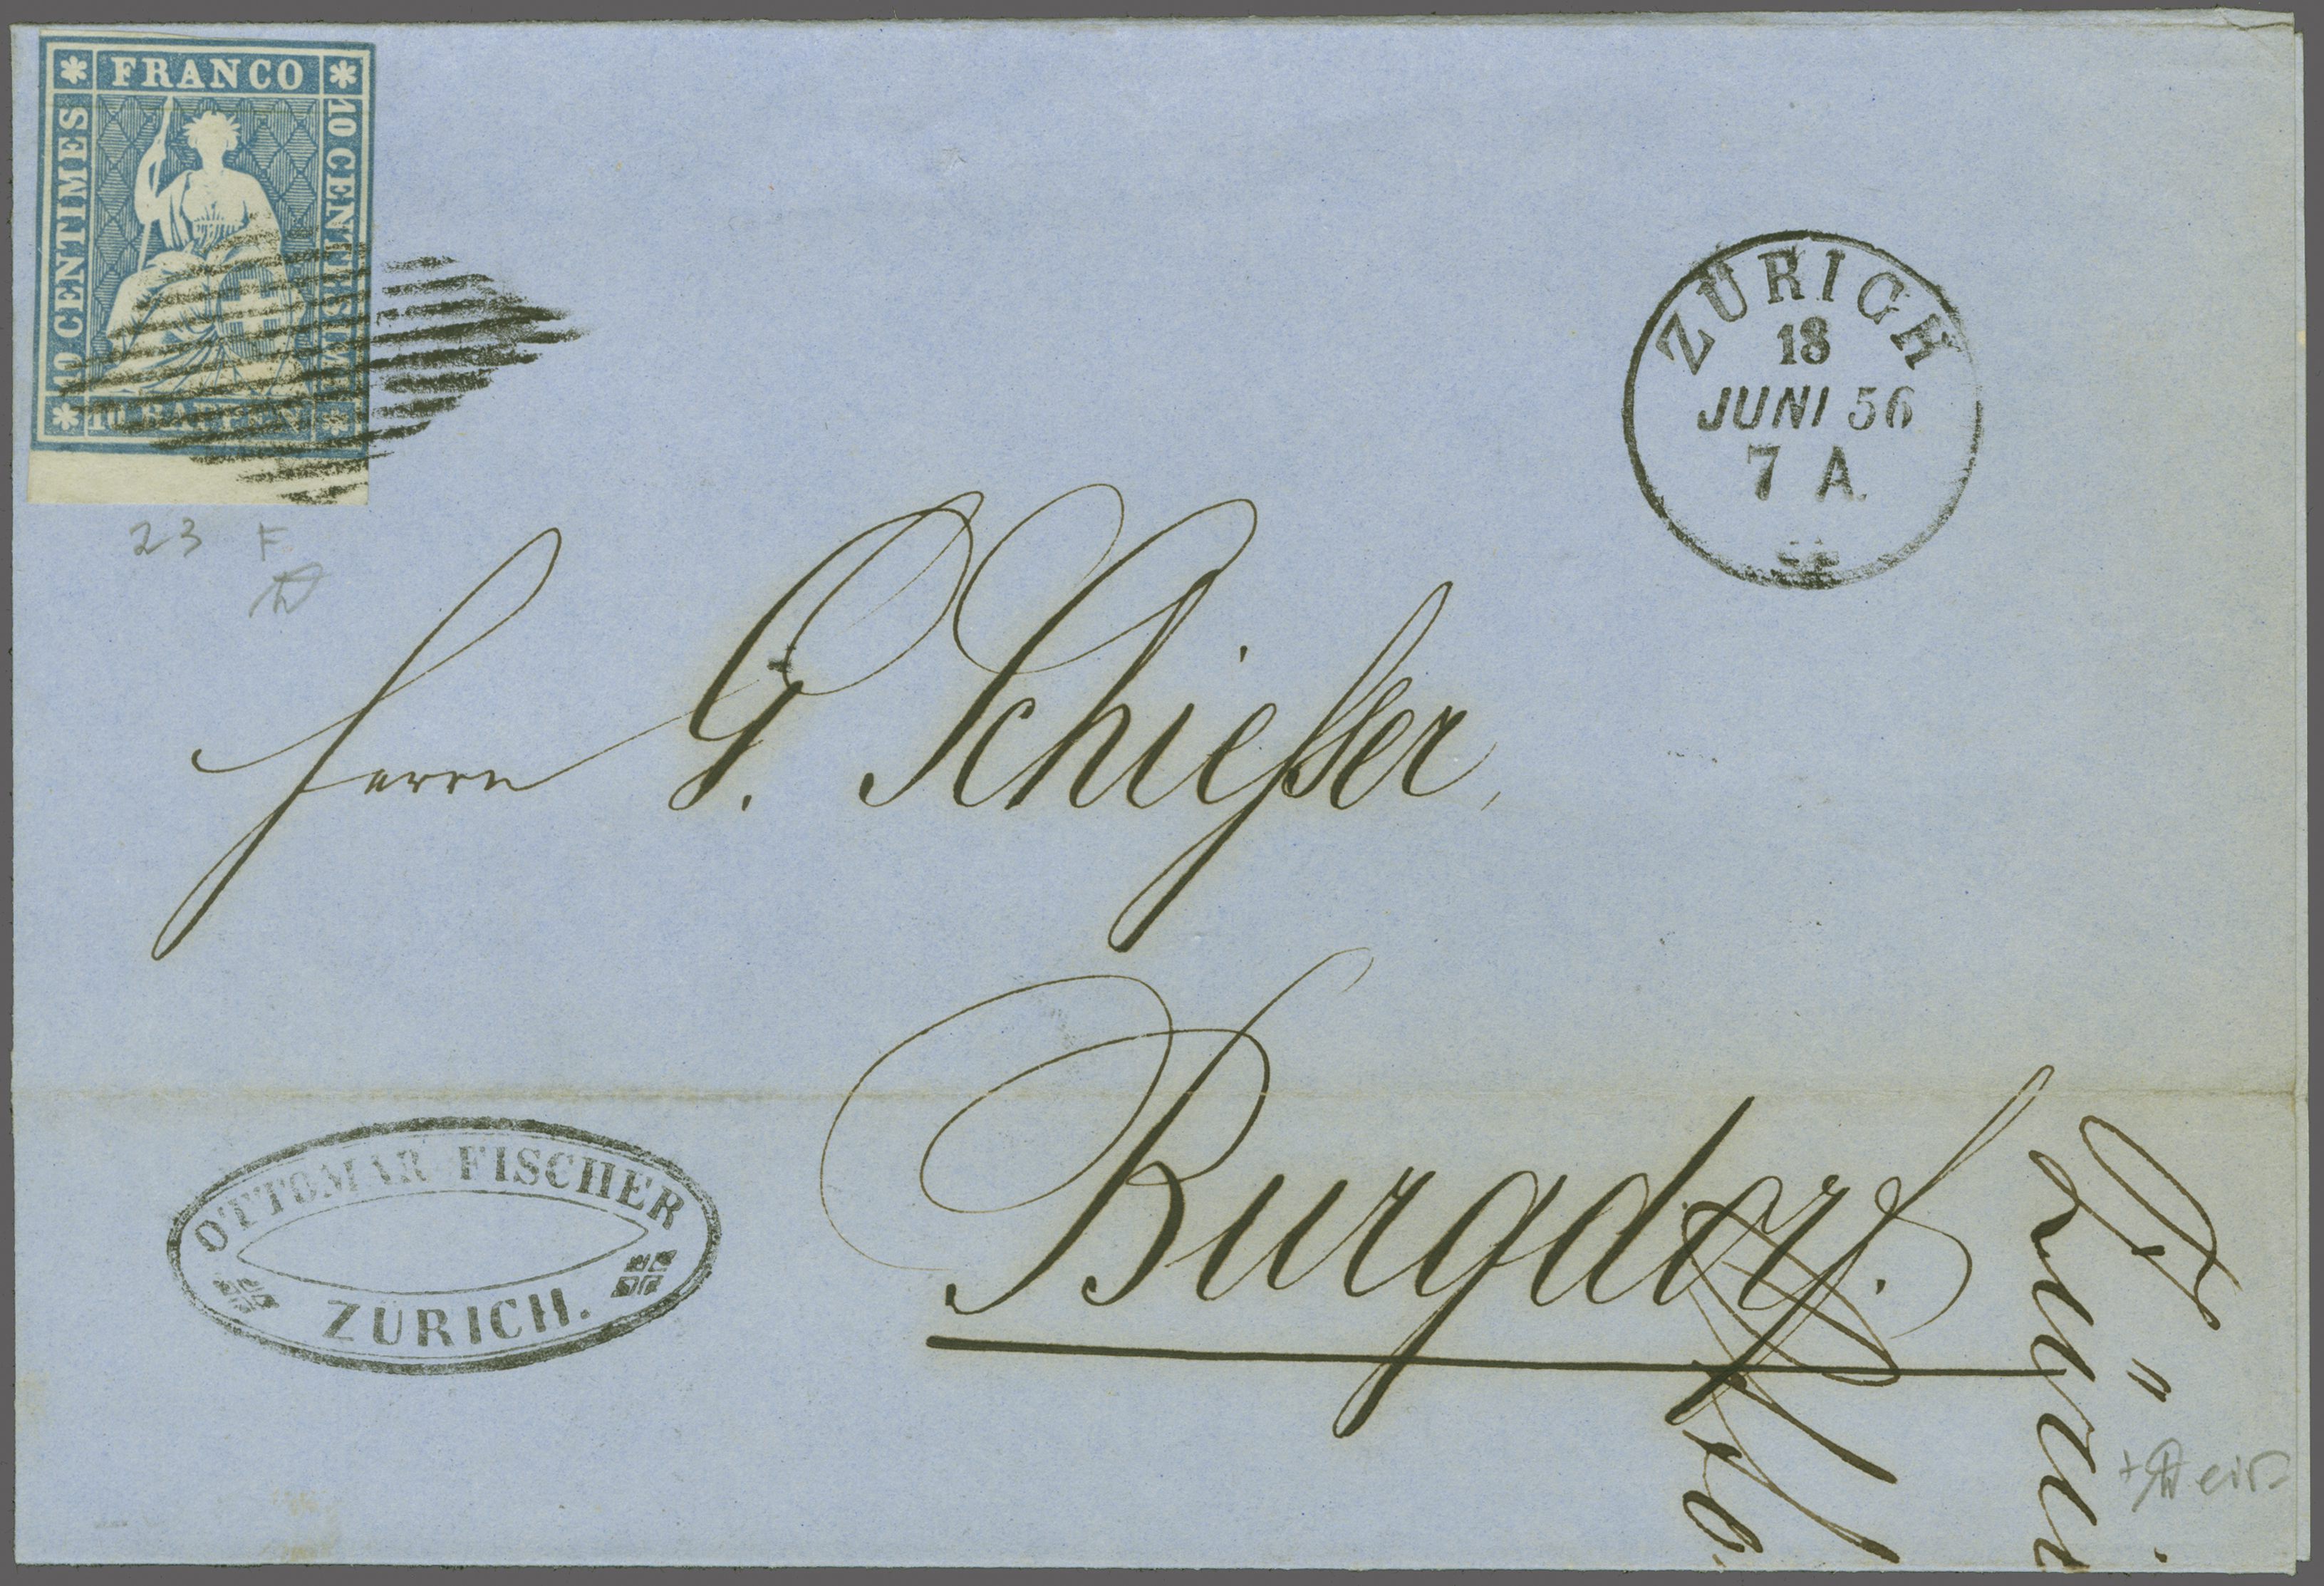 FRANCO
10 CENTIMES
10 CENTESIMI
10 RAPPEN
ZÜRICH
18
JUNI 56
7 A.
23 F
Herrn G. Schießer,
Burgdorf.
OTTOMAR FISCHER
ZÜRICH.